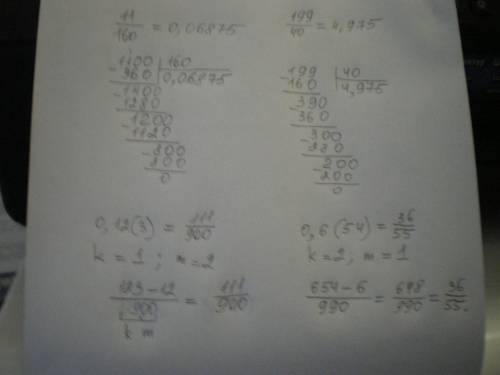 11/160 = 0,06875
199/40 = 4,975
1100 | 160
960 | 0,06875
1400
1280
1200
1120
800
800
0
199 | 40
160 | 4,975
390
360
300
280
200
200
0
0,12(3) = 111/900
k = 1 ; m = 2
(123-12)/900 = 111/900
k m
0,6(54) = 36/55
k = 2 ; m = 1
(654-6)/990 = 648/990 = 36/55.